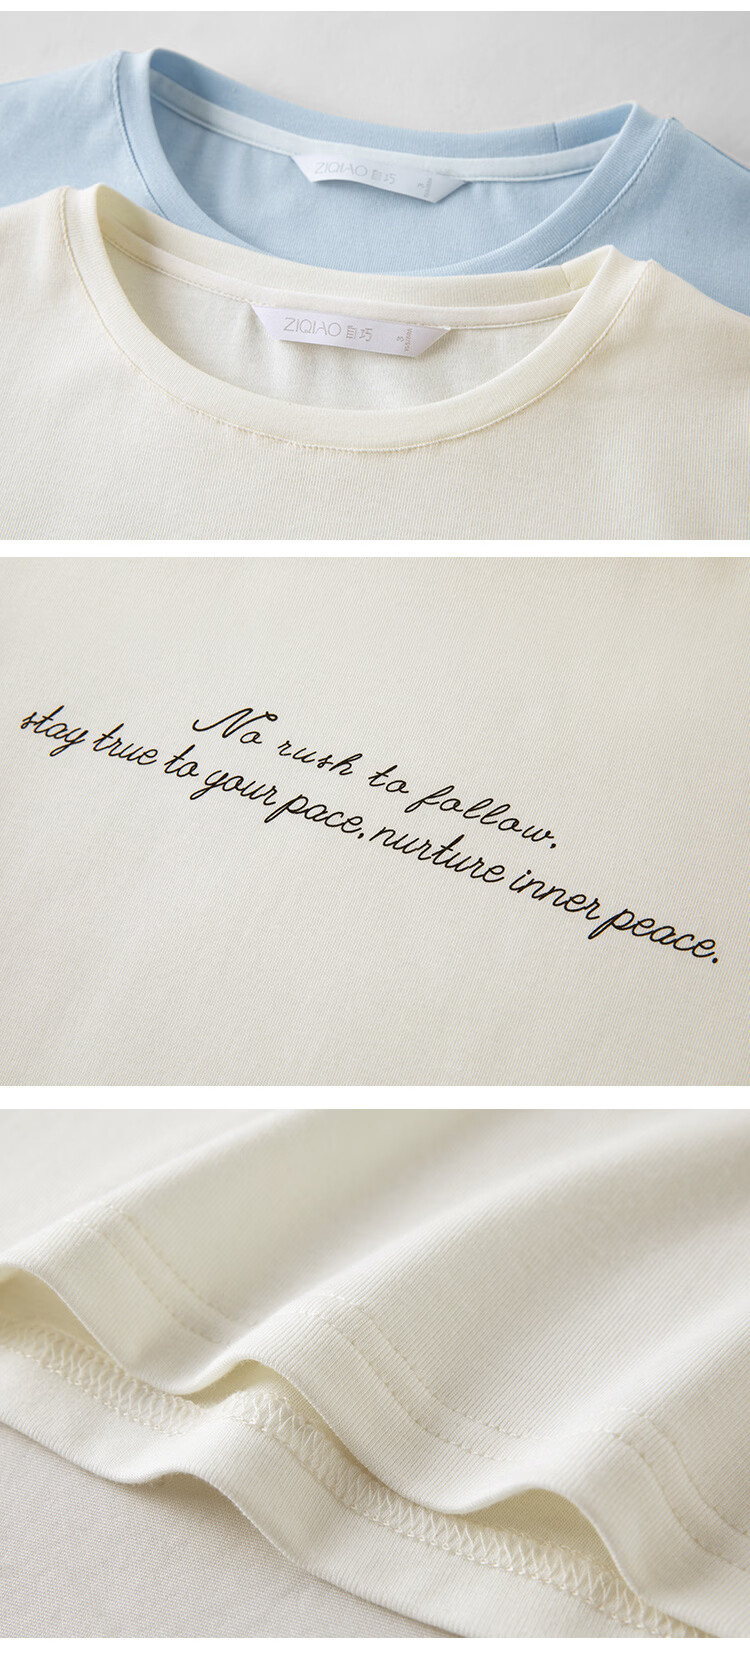 ZIQIAO 自巧
ZIQIAO 自巧
No rush to follow.
stay true to your pace, nurture inner peace.